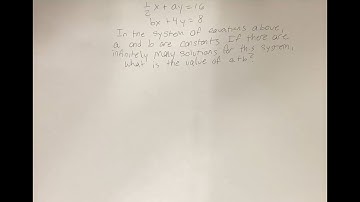 ½x + ay = 16
bx + 4y = 8
In the system of equations above,
a and b are constants. If there are
infinitely many solutions for this system,
what is the value of a+b?